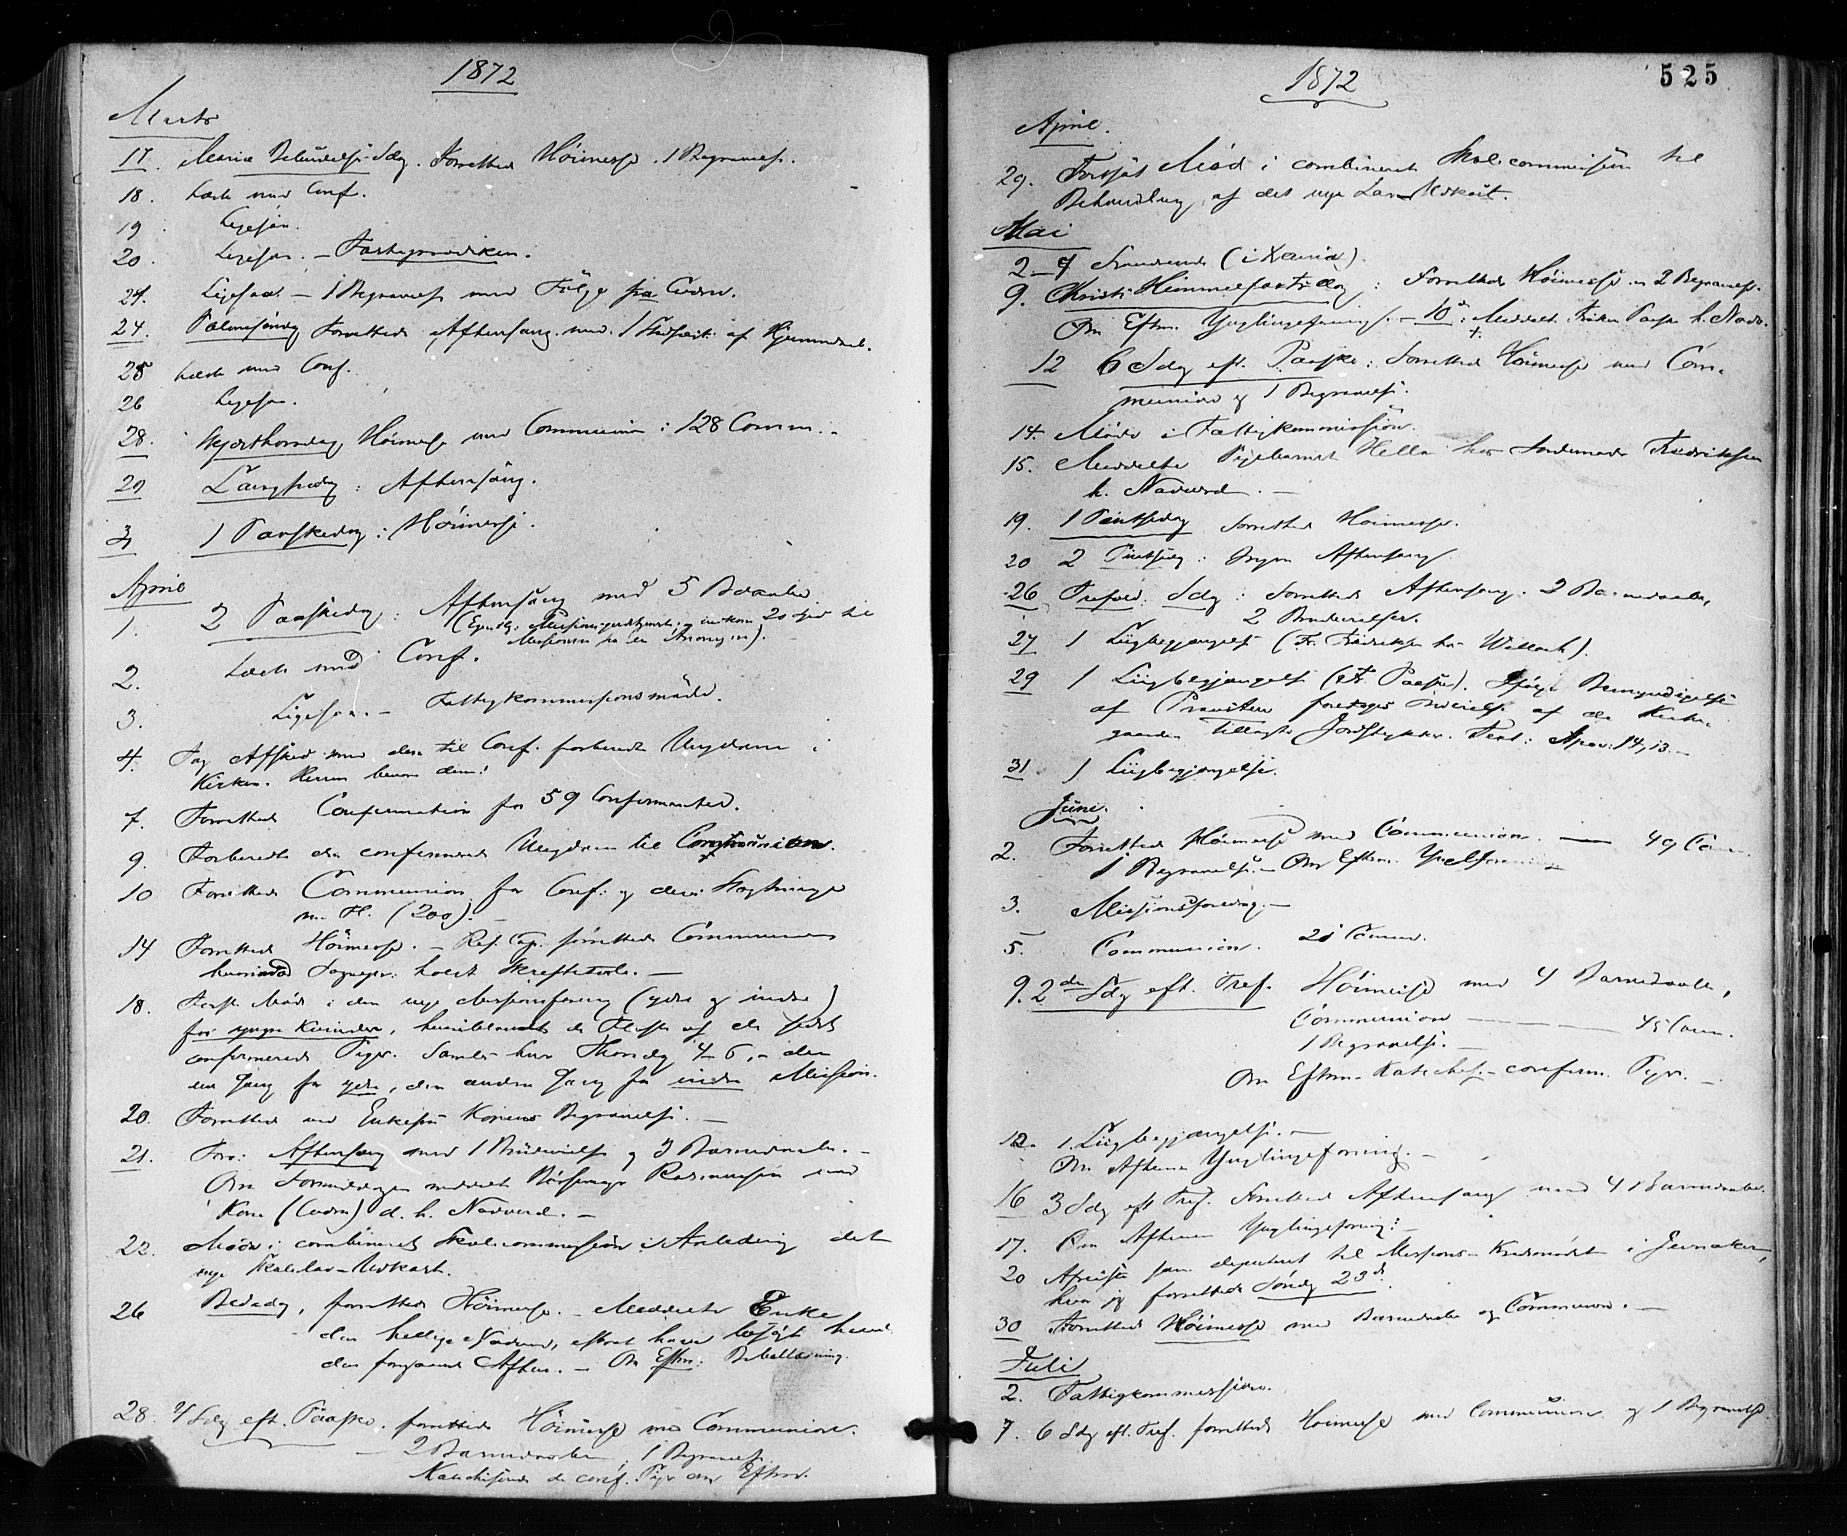 1872
Marts
17. Mariæ Bebudelses Sdg. Forrettede Høimesse. 1 Begravelse.
18. Læste med Conf.
19 Ligesaa.
20. Ligesaa. –
Ligesaa – 1 Begravelse med Følge fra
24. Palmesøndag Forrettede Aftensang med 1 af
25 Læste med Conf.
26 Ligesaa.
28. Skjærthorsdag Høimesse med Communion: 128 Comm.
29 Langfredag: Aftensang.
31 1 Paaskedag: Høimesse.
April
1. 2 Paaskedag: Aftensang med 5 Barnedaab
2. Læste med Conf.
3. Ligesaa. – Fattigkommissionsmøde.
4. Tog Afsked med den til Conf. forberedte Ungdom i
Kirken. Herren bevare dem!
7. Forrettede Confirmation for 59 Confirmanter.
9. Forberedte den confirmerede Ungdom til Communion.
10 Forrettede Communion for Conf. og deres Slægtninge
m. Fl. (200). –
14 Forrettede Høimesse. – Res. Cap. forrettede Communion
hvorimod Sognepr. holdt Skriftetale. –
18. Første Møde i den nye Missionsforening (ydre og indre)
for yngre Kvinder, hvoriblandt de Fleste af de sidst
confirmerede Piger. Samles hver Thorsdag 4–6, – den
ene Gang for ydre, den anden Gang for indre Mission.
20. Forrettede ved Enkefru Begravelse. –
21. Forr: Aftensang med 1 Brudevielse og 3 Barnedaab. –
Om Formiddagen meddelt Rasmussen med
Kone d. h. Nadverd. –
22. Møde i combineret Skolecommission i Anledning det
nye Skolelov-Udkast.
26 Bededag, forrettede Høimesse. – Meddelte Enke
den hellige Nadverd, efterat have besøgt hende
den foregaaende Aften. – Om Efterm: Bibellæsning.
28. 4 Sdg eft. Paaske. forrettede Høimesse med Communion.
– 2 Barnedaab, 1 Begravelse.
Katechiserede de conf. Piger om Efterm.
1872
525
April.
29. Fortsat Mød i combineret Skolecommission til
Behandling af det nye Lov-Udkast.
Mai
2–7 (i Xania).
9. Christi Himmelfartsdag: Forrettede Høimesse og 2 Begravelser.
Om Efterm. Ynglingeforening. – 10de: Meddelt Frøken h. Nadv.
12 6 Sdg eft. Paaske: Forrettede Høimesse med Com-
munion og 1 Begravelse.
14. Møde i Fattigkommission.
15. Meddelte Pigebarnet Hella hos Fredriksen
h. Nadverd. –
19. 1 Pintsedag forrettede Høimesse.
20 2 Pintsedag: Ingen Aftensang.
26 Trefold. Sdg: Forrettede Aftensang. 2 Barnedaab,
2 Brudevielser.
27 1 Liigbegjængelse
29 1 Liigbegjængelse Ifølge Bemyndigelse
af Provsten foretoges Indvielse af de Kirke-
gaarden tillagte Jordstykker. Text: Apoc: 14,13. –
31 1 Liigbegjængelse.
Juni.
2. Forrettede Høimesse med Communion. — 49 Com.
1 Begravelse. – Om Efterm. Ynglforening
3. Missionsforedrag. –
5. Communion. 21 Comm.
9. 2den Sdg eft. Tref. Høimesse med 4 Barnedaab,
Communion – – – – 45 Com.
1 Begravelse. –
Om Efterm. Katechis. – confirm. Piger. –
12. 1 Liigbegjængelse. –
Om Aftenen Ynglingeforening. –
16 3 Sdg eft Tref. Forrettede Aftensang med 4 Barnedaab.
17. Om Aftenen Ynglingeforening: –
20 Afreiste som deputeret til Missions-Kredsmødet i Jevnaker,
hvor jeg forrettede Søndg 23de.
30 Forrettede Høimesse med Barnedaab og Communion. –
Juli
2. Fattigkommission.
7. 6 Sdg eft. Tref. forrettede Høimesse med Communion og 1 Begravelse.